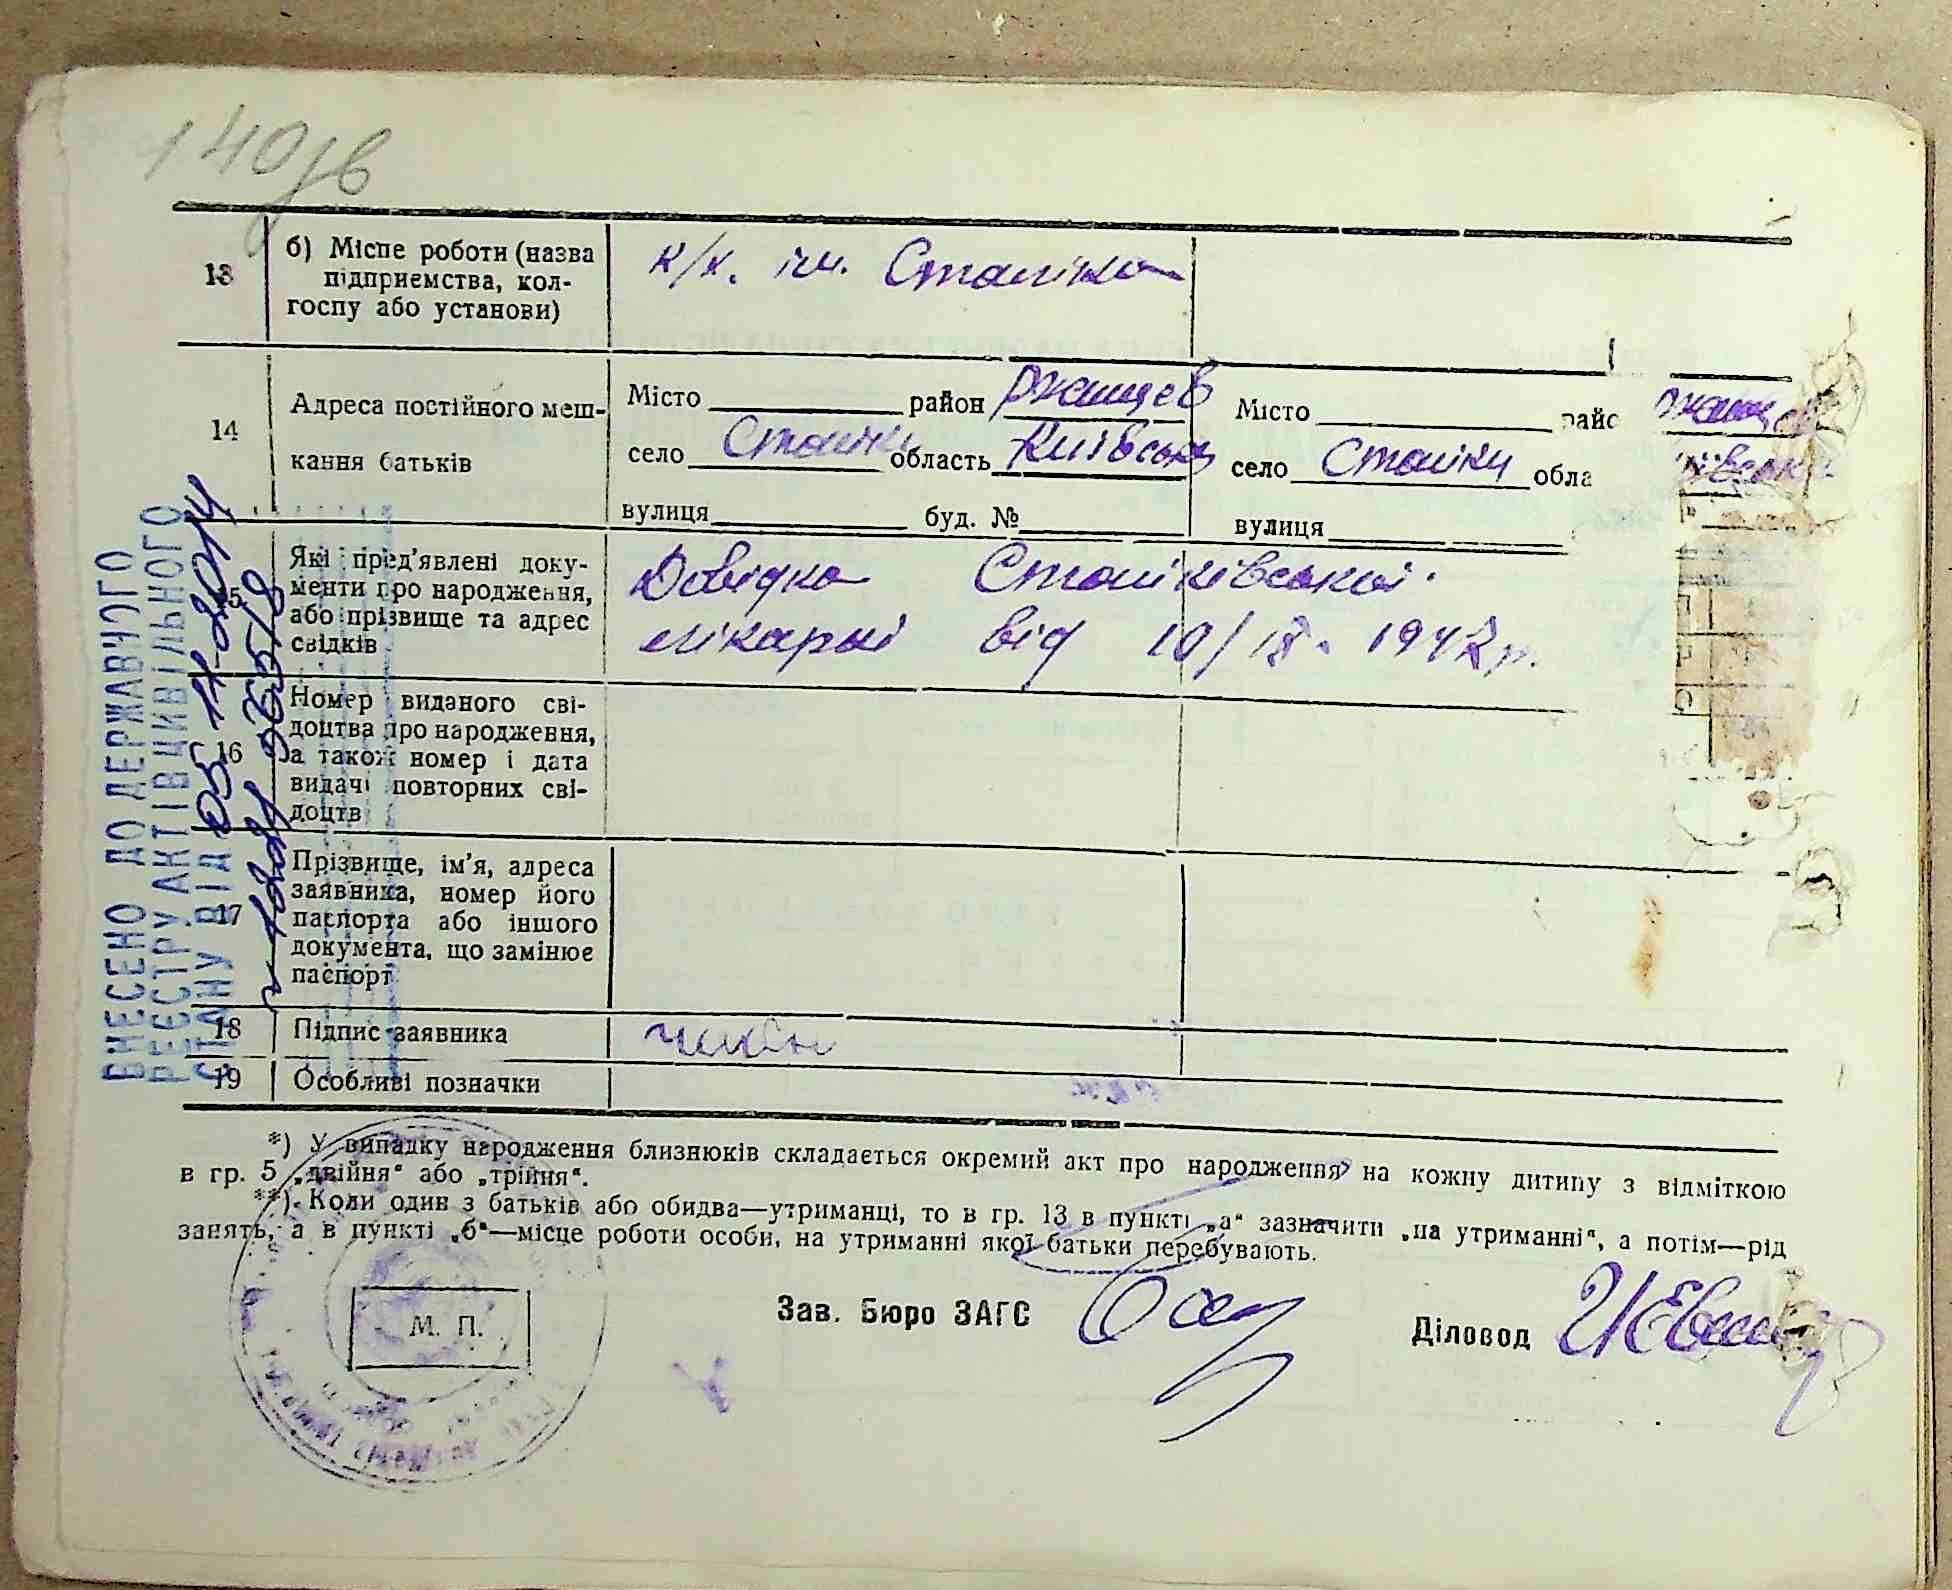 140зв
13 б) Місце роботи (назва підприємства, колгоспу або установи) к/к. ім. Сталіна
14 Адреса постійного мешкання батьків
Місто район Ржищев Місто райо Ржищ
село Стайки область Київська село Стайки обла ївська
вулиця буд. № вулиця
15 Які пред'явлені документи про народження, або прізвище та адрес свідків
Довідка Стайківської
лікарні від 1947 р.
16 Номер виданого свідоцтва про народження, а також номер і дата видачі повторних свідоцтв
17 Прізвище, ім'я, адреса заявника, номер його паспорта або іншого документа, що замінює паспорт
18 Підпис заявника
19 Особливі позначки
ВНЕСЕНО ДО ДЕРЖАВНОГО
РЕЄСТРУ АКТІВ ЦИВІЛЬНОГО
СТАНУ ВІД 05 11 2014
*) У випадку народження близнюків складається окремий акт про народження на кожну дитину з відміткою
в гр. 5 „двійня" або „трійня".
**) Коли один з батьків або обидва—утриманці, то в гр. 13 в пункті „а" зазначити „на утриманні", а потім—рід
занять, а в пункті „б"—місце роботи особи, на утриманні якої батьки перебувають.
М. П.
Зав. Бюро ЗАГС
Діловод